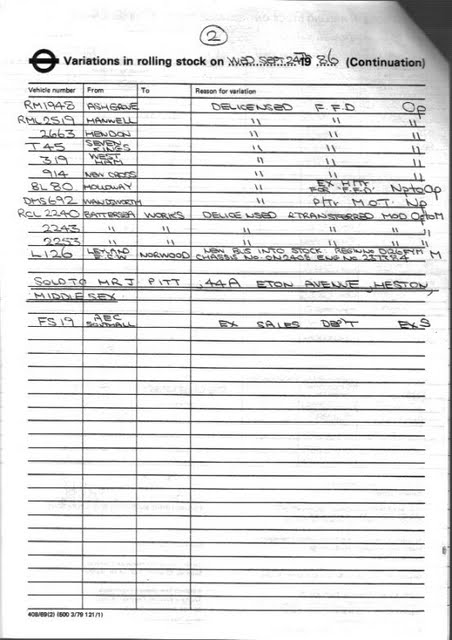 2
Variations in rolling stock on WED SEPT 24TH 1986 (Continuation)
Vehicle number From To Reason for variation
RM1948 ASHGROVE DELICENSED F.F.D Op
RML2519 HANWELL " " "
2663 HENDON " " "
T45 SEVEN KINGS " " "
319 WEST HAM " " "
914 NEW CROSS " " "
BL80 HOLLOWAY " EX HIRE FOR F.F.D. Np to Op
DMS692 WANDSWORTH " PTR M.O.T. Np
RCL2240 BATTERSEA WORKS DELICENSED & TRANSFERRED MOD Op to M
2243 " " " " "
2253 " " " " "
L126 LEYLAND E.C.W NORWOOD NEW BUS INTO STOCK REGN NO D126FYM M
CHASSIS NO. ON2403
SOLD TO MR J PITT, 44A ETON AVENUE, HESTON,
MIDDLESEX.
FS19 AEC SOUTHALL EX SALES DEPT EX S
408/89(2) (500 3/79 121/1)